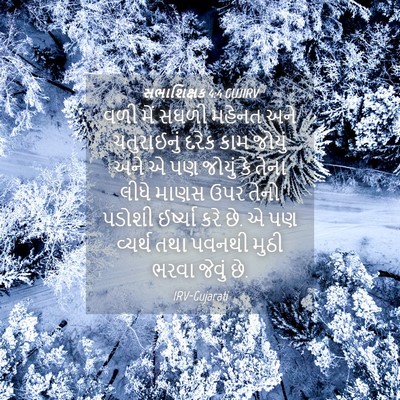 સભાશિક્ષક 4:4 GUJIRV
વળી મેં સઘળી મહેનત અને
ચતુરાઈનું દરેક કામ જોયું
અને એ પણ જોયું કે તેના
લીધે માણસ ઉપર તેનો
પડોશી ઈર્ષ્યા કરે છે. એ પણ
વ્યર્થ તથા પવનથી મુઠ્ઠી
ભરવા જેવું છે.
IRV-Gujarati